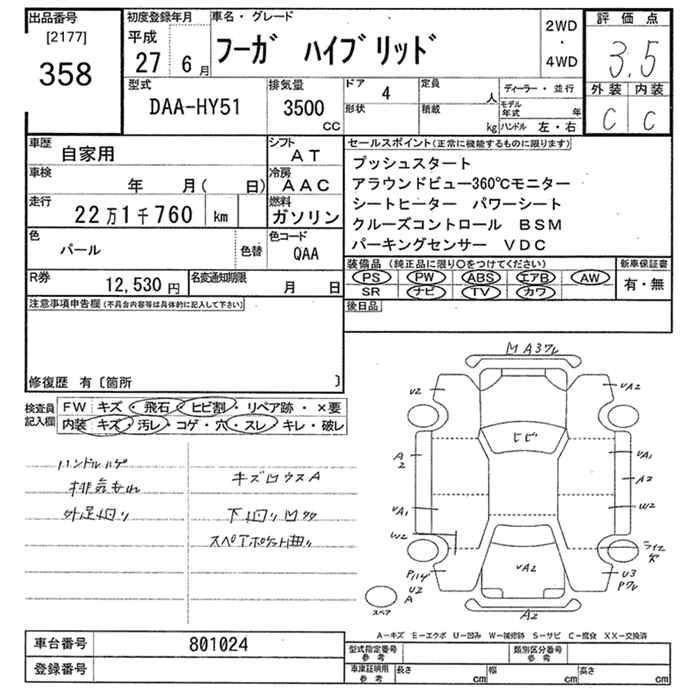 出品番号
[2177]
358
初度登録年月
平成
27 6月
車名・グレード
フーガ ハイブリッド
2WD
・
4WD
評価点
3.5
外装 内装
C C
型式
DAA-HY51
排気量
3500
CC
ドア
4
形状
定員
人
積載
kg
ディーラー・並行
モデル年式 年
ハンドル 左・右
車歴
自家用
シフト
AT
車検
年 月( 日)
冷房
AAC
走行
22万1千760 km
燃料
ガソリン
色
パール
色替
色コード
QAA
R券
12,530円
名変通知期限
月 日
セールスポイント(正常に機能するものに限ります)
プッシュスタート
アラウンドビュー360℃モニター
シートヒーター パワーシート
クルーズコントロール BSM
パーキングセンサー VDC
装備品 (純正品に限り○をつけてください)
PS PW ABS エアB AW
SR ナビ TV カワ
新車保証書
有・無
後日品
注意事項申告欄(不具合内容等は具体的に記入して下さい)
修復歴 有〔箇所 〕
検査員
記入欄
FW キズ・飛石・ヒビ割・リペア跡・×要
内装 キズ・汚レ・コゲ・穴・スレ・キレ・破レ
ハンドルハゲ
排気もれ
外足回り
キズ凹ウスA
下回り凹サク
スペアポケット曲り
凹A3ワレ
U2
UA2
ヒビ
A
2
UA1
A2
W2
UA1
W2
ライニング
Pハゲ
U2
A
UA2
U3
Pワレ
A2
スペア
A-キズ E-エクボ U-凹み W-補修跡 S-サビ C-腐食 XX-交換済
車台番号
801024
登録番号
型式指定番号
参考
類別区分番号
参考
車庫証明用
参考
長さ cm
幅 cm
高さ cm